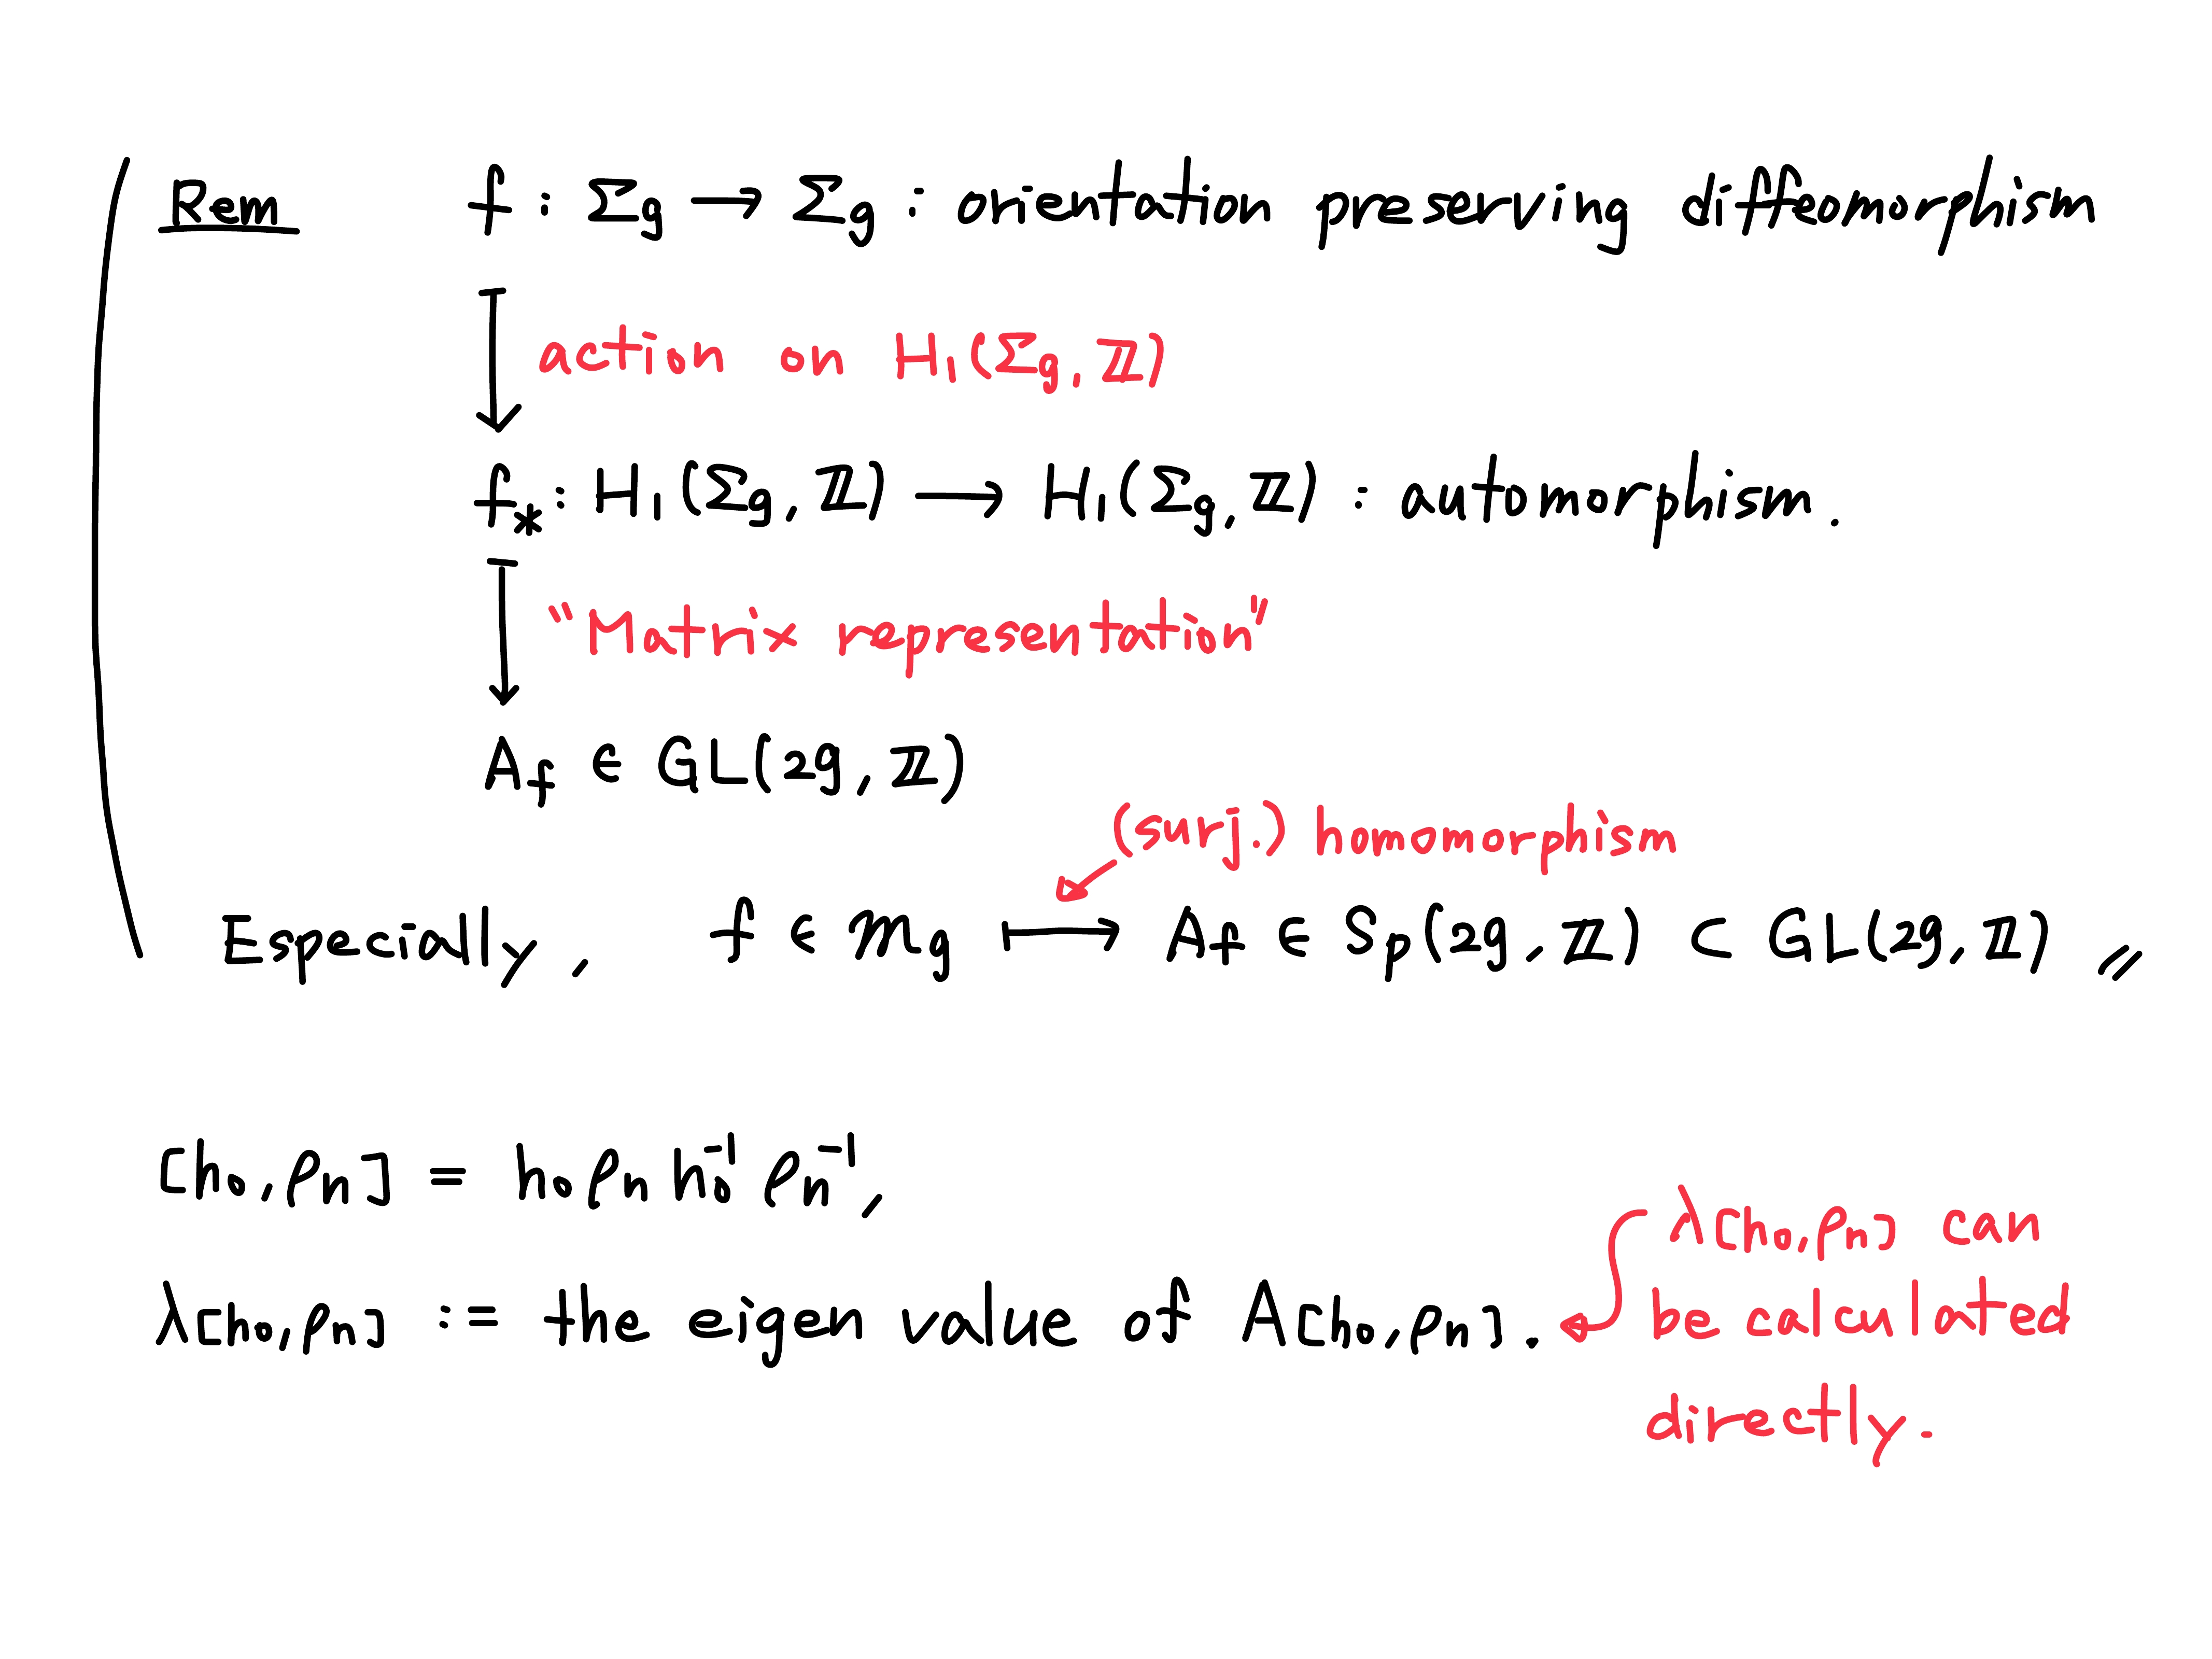 Rem f : Σg → Σg : orientation preserving diffeomorphism
action on H₁(Σg, ℤ)
f* : H₁(Σg, ℤ) → H₁(Σg, ℤ) : automorphism.
"Matrix representation"
A_f ∈ GL(2g, ℤ)
(surj.) homomorphism
Especially, f ∈ Mg ↦ A_f ∈ Sp(2g, ℤ) ⊂ GL(2g, ℤ) //
[h₀, ρn] = h₀ ρn h₀⁻¹ ρn⁻¹,
λ[h₀, ρn] := the eigen value of A[h₀, ρn].
λ[h₀, ρn] can
be calculated
directly.